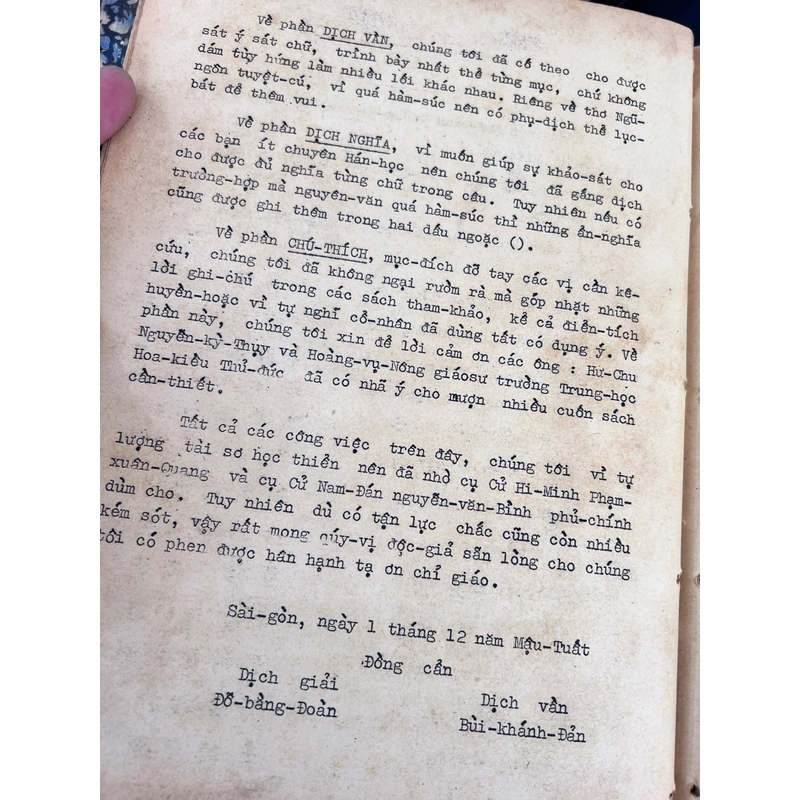 Về phần DỊCH VẦN, chúng tôi đã cố theo cho được
sát ý sát chữ, trình bày nhất thể từng mục, chứ không
dám tùy hứng làm nhiều lối khác nhau. Riêng về thơ Ngũ-
ngôn tuyệt-cú, vì quá hàm-súc nên có phụ-dịch thể lục-
bát để thêm vui.
Về phần DỊCH NGHĨA, vì muốn giúp sự khảo-sát cho
các bạn ít chuyên Hán-học nên chúng tôi đã gắng dịch
cho được đủ nghĩa từng chữ trong câu. Tuy nhiên nếu có
trường-hợp mà nguyên-văn quá hàm-súc thì những ẩn-nghĩa
cũng được ghi thêm trong hai dấu ngoặc ().
Về phần CHÚ-THÍCH, mục-đích đỡ tay các vị cần kê-
cứu, chúng tôi đã không ngại rườm rà mà góp nhặt những
lời ghi-chú trong các sách tham-khảo, kể cả điển-tích
huyền-hoặc vì tự nghĩ cổ-nhân đã dùng tất có dụng ý. Về
phần này, chúng tôi xin để lời cảm ơn các ông : Hư-Chu
Nguyễn-kỳ-Thụy và Hoàng-vụ-Nông giáosư trường Trung-học
Hoa-kiều Thủ-đức đã có nhã ý cho mượn nhiều cuốn sách
cần-thiết.
Tất cả các công việc trên đây, chúng tôi vì tự
lượng tài sơ học thiển nên đã nhờ cụ Cử Hi-Minh Phạm-
xuân-Quang và cụ Cử Nam-Đán nguyễn-văn-Bình phủ-chính
dùm cho. Tuy nhiên dù có tận lực chắc cũng còn nhiều
kém sót, vậy rất mong qúy-vị độc-giả sẵn lòng cho chúng
tôi có phen được hân hạnh tạ ơn chỉ giáo.
Sài-gòn, ngày 1 tháng 12 năm Mậu-Tuất
Đồng cẩn
Dịch giải
Dịch vần
Đỗ-bằng-Đoàn
Bùi-khánh-Đản